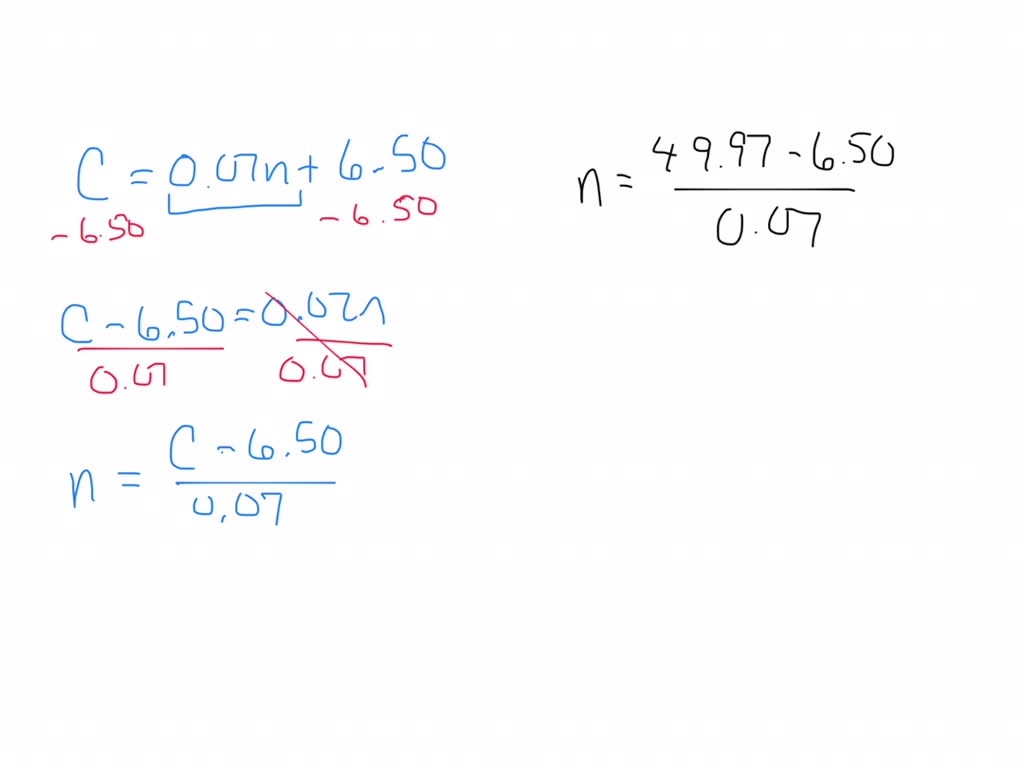 C = 0.07n + 6.50
- 6.50 - 6.50
C - 6.50 = 0.07n
0.07 0.07
n = C - 6.50
0.07
n = 49.97 - 6.50
0.07